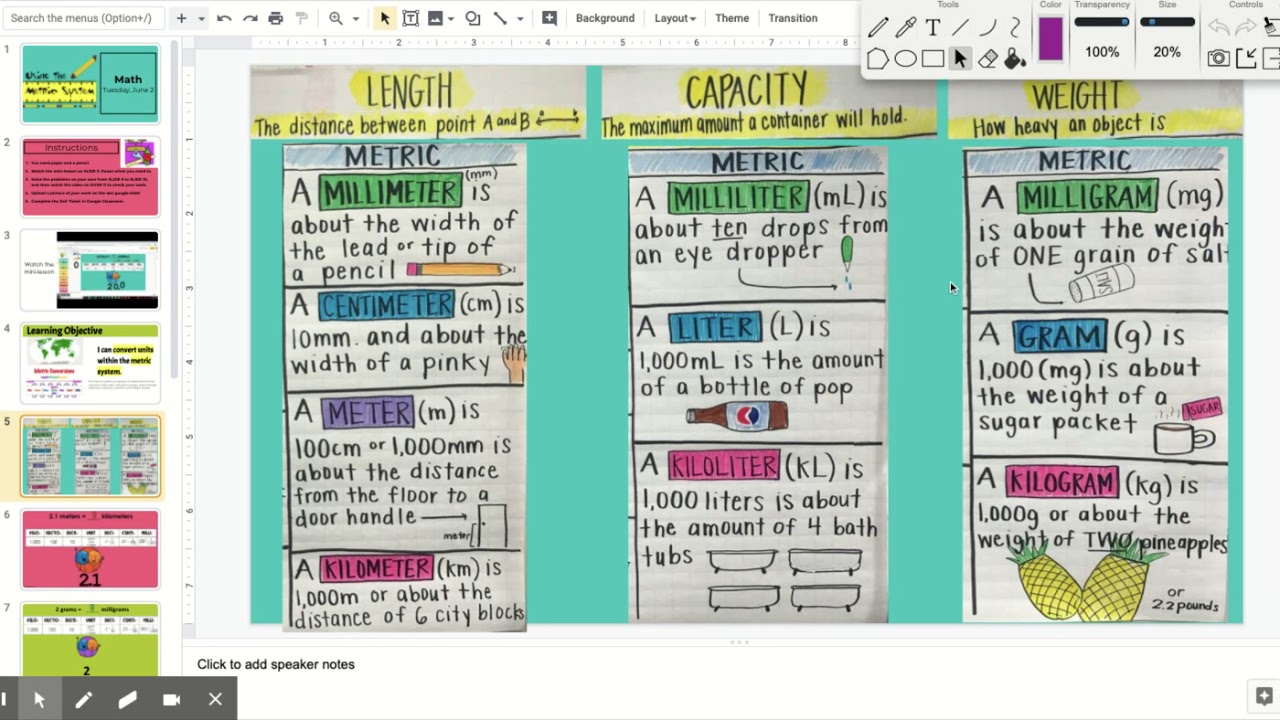 Search the menus (Option+/)
Background
Layout
Theme
Transition
Tools
Color
Transparency
Size
Controls
100%
20%
1 2 3 4 5 6 7 8
1
Using the
Metric System
Math
Tuesday, June 2
2
Instructions
3
Watch the
mini-lesson
200
4
Learning Objective
I can convert units
within the metric
system.
5
6
2.1 meters = kilometers
2.1
7
2 grams = milligrams
2
LENGTH
The distance between point A and B
METRIC
A MILLIMETER (mm) is
about the width of
the lead or tip of
a pencil
A CENTIMETER (cm) is
10mm. and about the
width of a pinky
A METER (m) is
100cm or 1,000mm is
about the distance
from the floor to a
door handle
meter
A KILOMETER (km) is
1,000m or about the
distance of 6 city blocks
CAPACITY
The maximum amount a container will hold.
METRIC
A MILLILITER (mL) is
about ten drops from
an eye dropper
A LITER (L) is
1,000mL is the amount
of a bottle of pop
A KILOLITER (kL) is
1,000 liters is about
the amount of 4 bath
tubs
WEIGHT
How heavy an object is
METRIC
A MILLIGRAM (mg)
is about the weigh
of ONE grain of salt
SALT
A GRAM (g) is
1,000 (mg) is about
the weight of a
sugar packet
SUGAR
A KILOGRAM (kg) is
1,000g or about the
weight of TWO pineapples
or
2.2 pounds
Click to add speaker notes